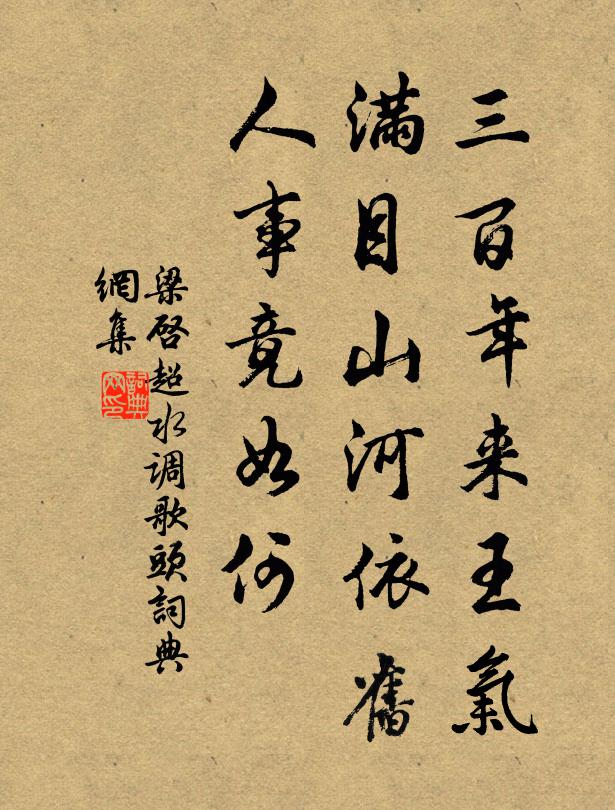 三百年来王氣
滿目山河依舊
人事竟如何
梁啓超水调歌頭詞典
網集
詞典
网印